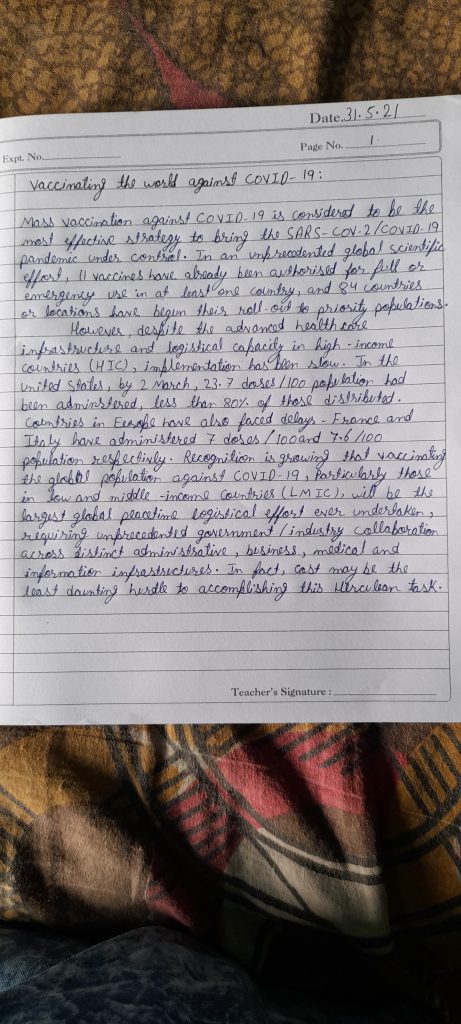 Date.31.5.21
Page No. 1.
Expt. No.
Vaccinating the world against COVID-19:
Mass vaccination against COVID-19 is considered to be the
most effective strategy to bring the SARS-COV-2/COVID-19
pandemic under control. In an unprecedented global scientific
effort, 11 vaccines have already been authorised for full or
emergency use in at least one country, and 84 countries
or locations have begun their roll-out to priority populations.
However, despite the advanced healthcare
infrastructure and logistical capacity in high-income
countries (HIC), implementation has been slow. In the
United States, by 2 March, 23.7 doses/100 population had
been adminstered, less than 80% of those distributed.
Countries in Europe have also faced delays. France and
Italy have administered 7 doses/100 and 7.6/100
population respectively. Recognition is growing that vaccinating
the global population against COVID-19, Particularly those
in low and middle-income Countries (LMIC), will be the
largest global peacetime logistical effort ever undertaken,
requiring unprecedented government/industry collaboration
across distinct administrative, business, medical and
information infrastructures. In fact, cost may be the
least daunting hurdle to accomplishing this Herculean task.
Teacher's Signature :